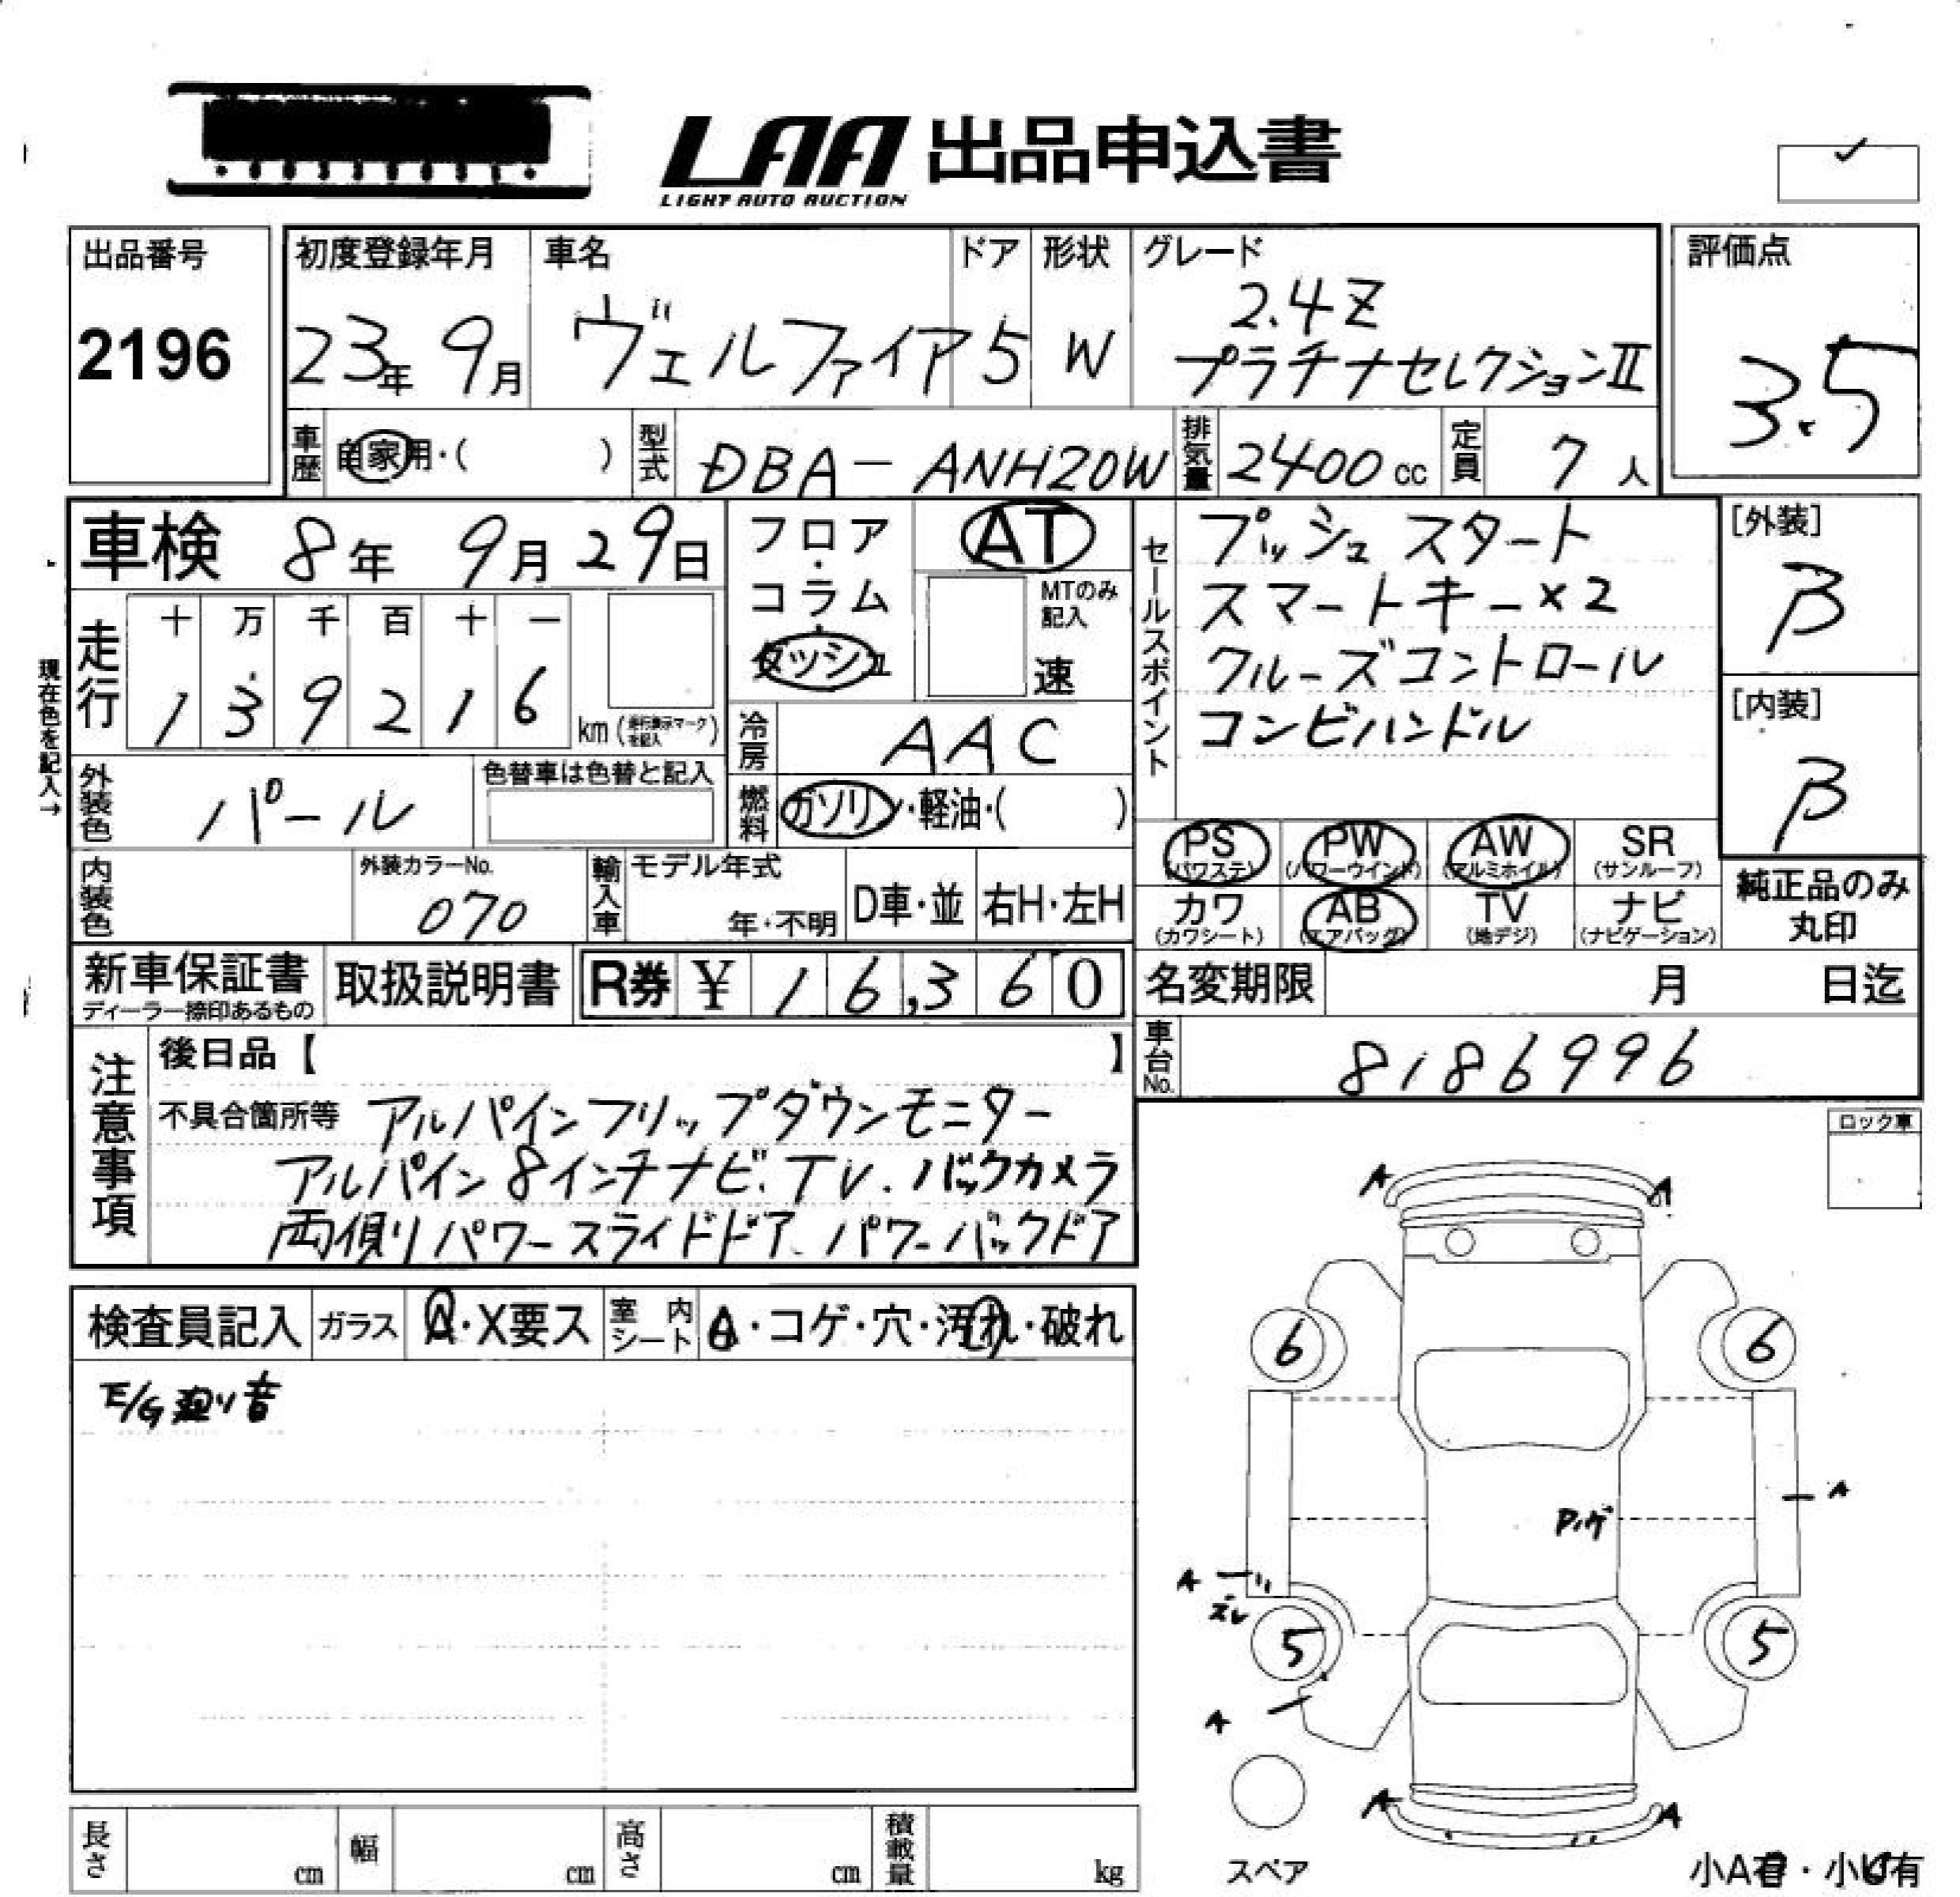 LAA 出品申込書
LIGHT AUTO AUCTION
出品番号
2196
初度登録年月
23年 9月
車名
ヴェルファイア
ドア
5
形状
W
グレード
2.4Z
プラチナセレクションII
評価点
3.5
車歴
自家用・( )
型式
DBA-ANH20W
排気量
2400cc
定員
7人
車検 8年 9月 29日
現在色を記入→
走行
十 万 千 百 十 一
1 3 9 2 1 6
km(走行表示マークを記入)
フロア・
コラム・
ダッシュ
AT
MTのみ記入
速
冷房
AAC
燃料
ガソリン・軽油・( )
外装色
パール
色替車は色替と記入
内装色
外装カラーNo.
070
輸入車
モデル年式
年・不明
D車・並
右H・左H
セールスポイント
プッシュスタート
スマートキー×2
クルーズコントロール
コンビハンドル
[外装]
β
[内装]
β
PS
(パワステ)
PW
(パワーウインド)
AW
(アルミホイル)
SR
(サンルーフ)
カワ
(カワシート)
AB
(エアバッグ)
TV
(地デジ)
ナビ
(ナビゲーション)
純正品のみ
丸印
新車保証書
ディーラー捺印あるもの
取扱説明書
R券 ¥ 16,360
名変期限 月 日迄
車台No.
8186996
注意事項
後日品【 】
不具合箇所等 アルパインフリップダウンモニター
アルパイン8インチナビ.TV.バックカメラ
両側リパワースライドドア.パワーバックドア
ロック車
検査員記入
ガラス
A・X要ス
室内シート
A・コゲ・穴・汚れ・破れ
E/G 廻り音
A
A
6
6
A
A
ズレ
5
5
A
A
A
スペア
長さ cm
幅 cm
高さ cm
積載量 kg
小A有・小U有